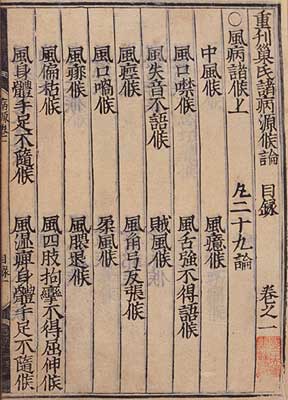 重刋巢氏諸病源候論 目録 卷之一
〇風病諸候上 凡二十九論
中風候 風癔候
風口噤候 風舌強不得語候
風失音不語候 賊風候
風痙候 風角弓反張候
風口喎候 柔風候
風痱候 風腲退候
風偏枯候 風四肢拘攣不得屈伸候
風身體手足不隨候 風濕痺身體手足不隨候
目録